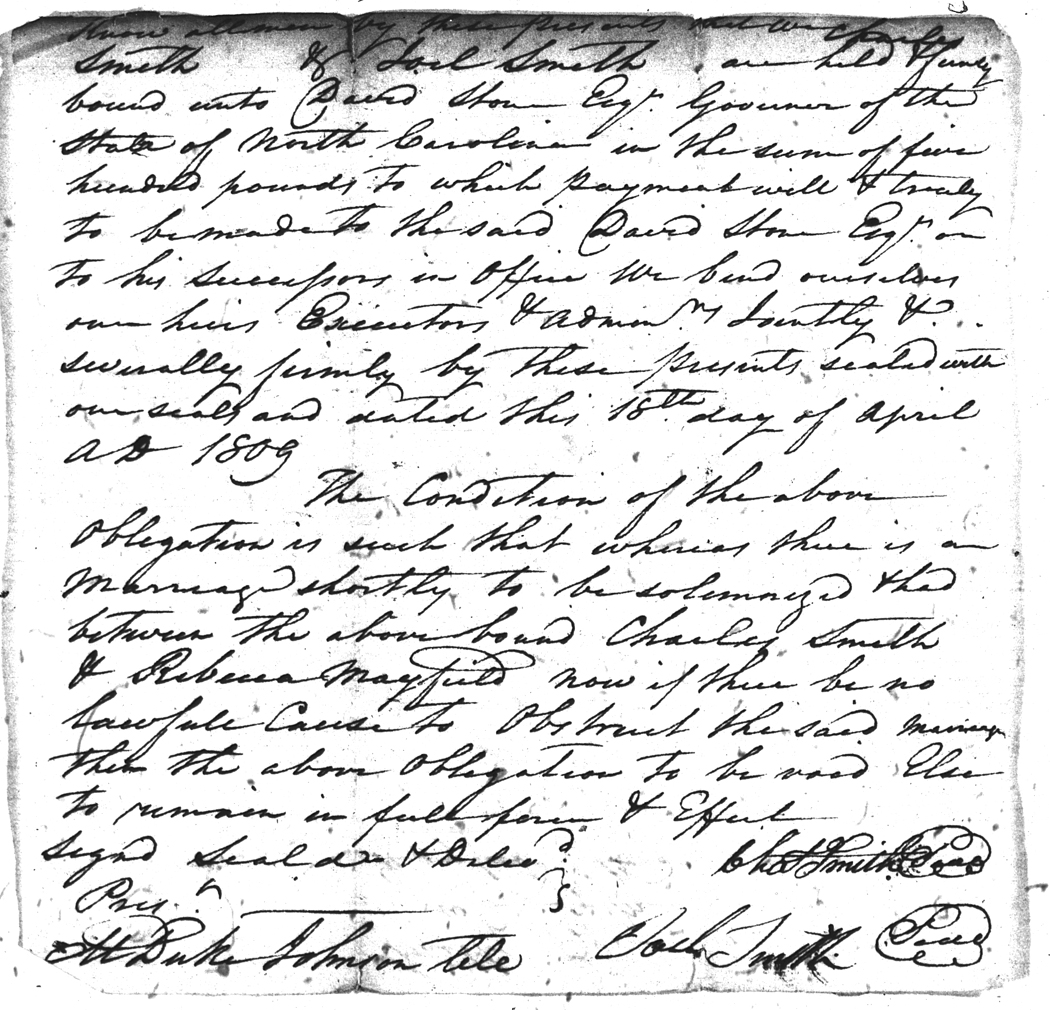 Know all men by these presents that we Charles
Smith & Joel Smith are held & firmly
bound unto David Stone Esqr. Governer of the
State of North Carolina in the sum of five
hundred pounds to which payment will & truly
to be made to the said David Stone Esqr. or
to his Successors in Office We bind ourselves
our heirs Executors & Admin.rs Jointly &
severally firmly by these presents sealed with
our seals and dated this 18th. day of April
AD 1809
The Condition of the above
Obligation is such that whereas there is a
Marriage shortly to be solemnized & had
between the above bound Charles Smith
& Rebecca Mayfield now if there be no
lawfull Cause to Obstruct the said marriage
then the above Obligation to be void Else
to remain in full force & Effect
Signd Seald & Delivd.
Pres.
Duke Johnson Chas Smith Seal
Smith Seal